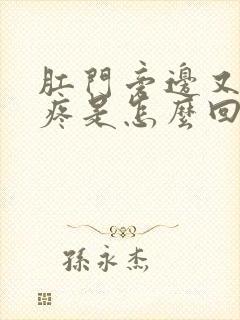 肛門旁邊又
疼是怎麼回
孫永杰